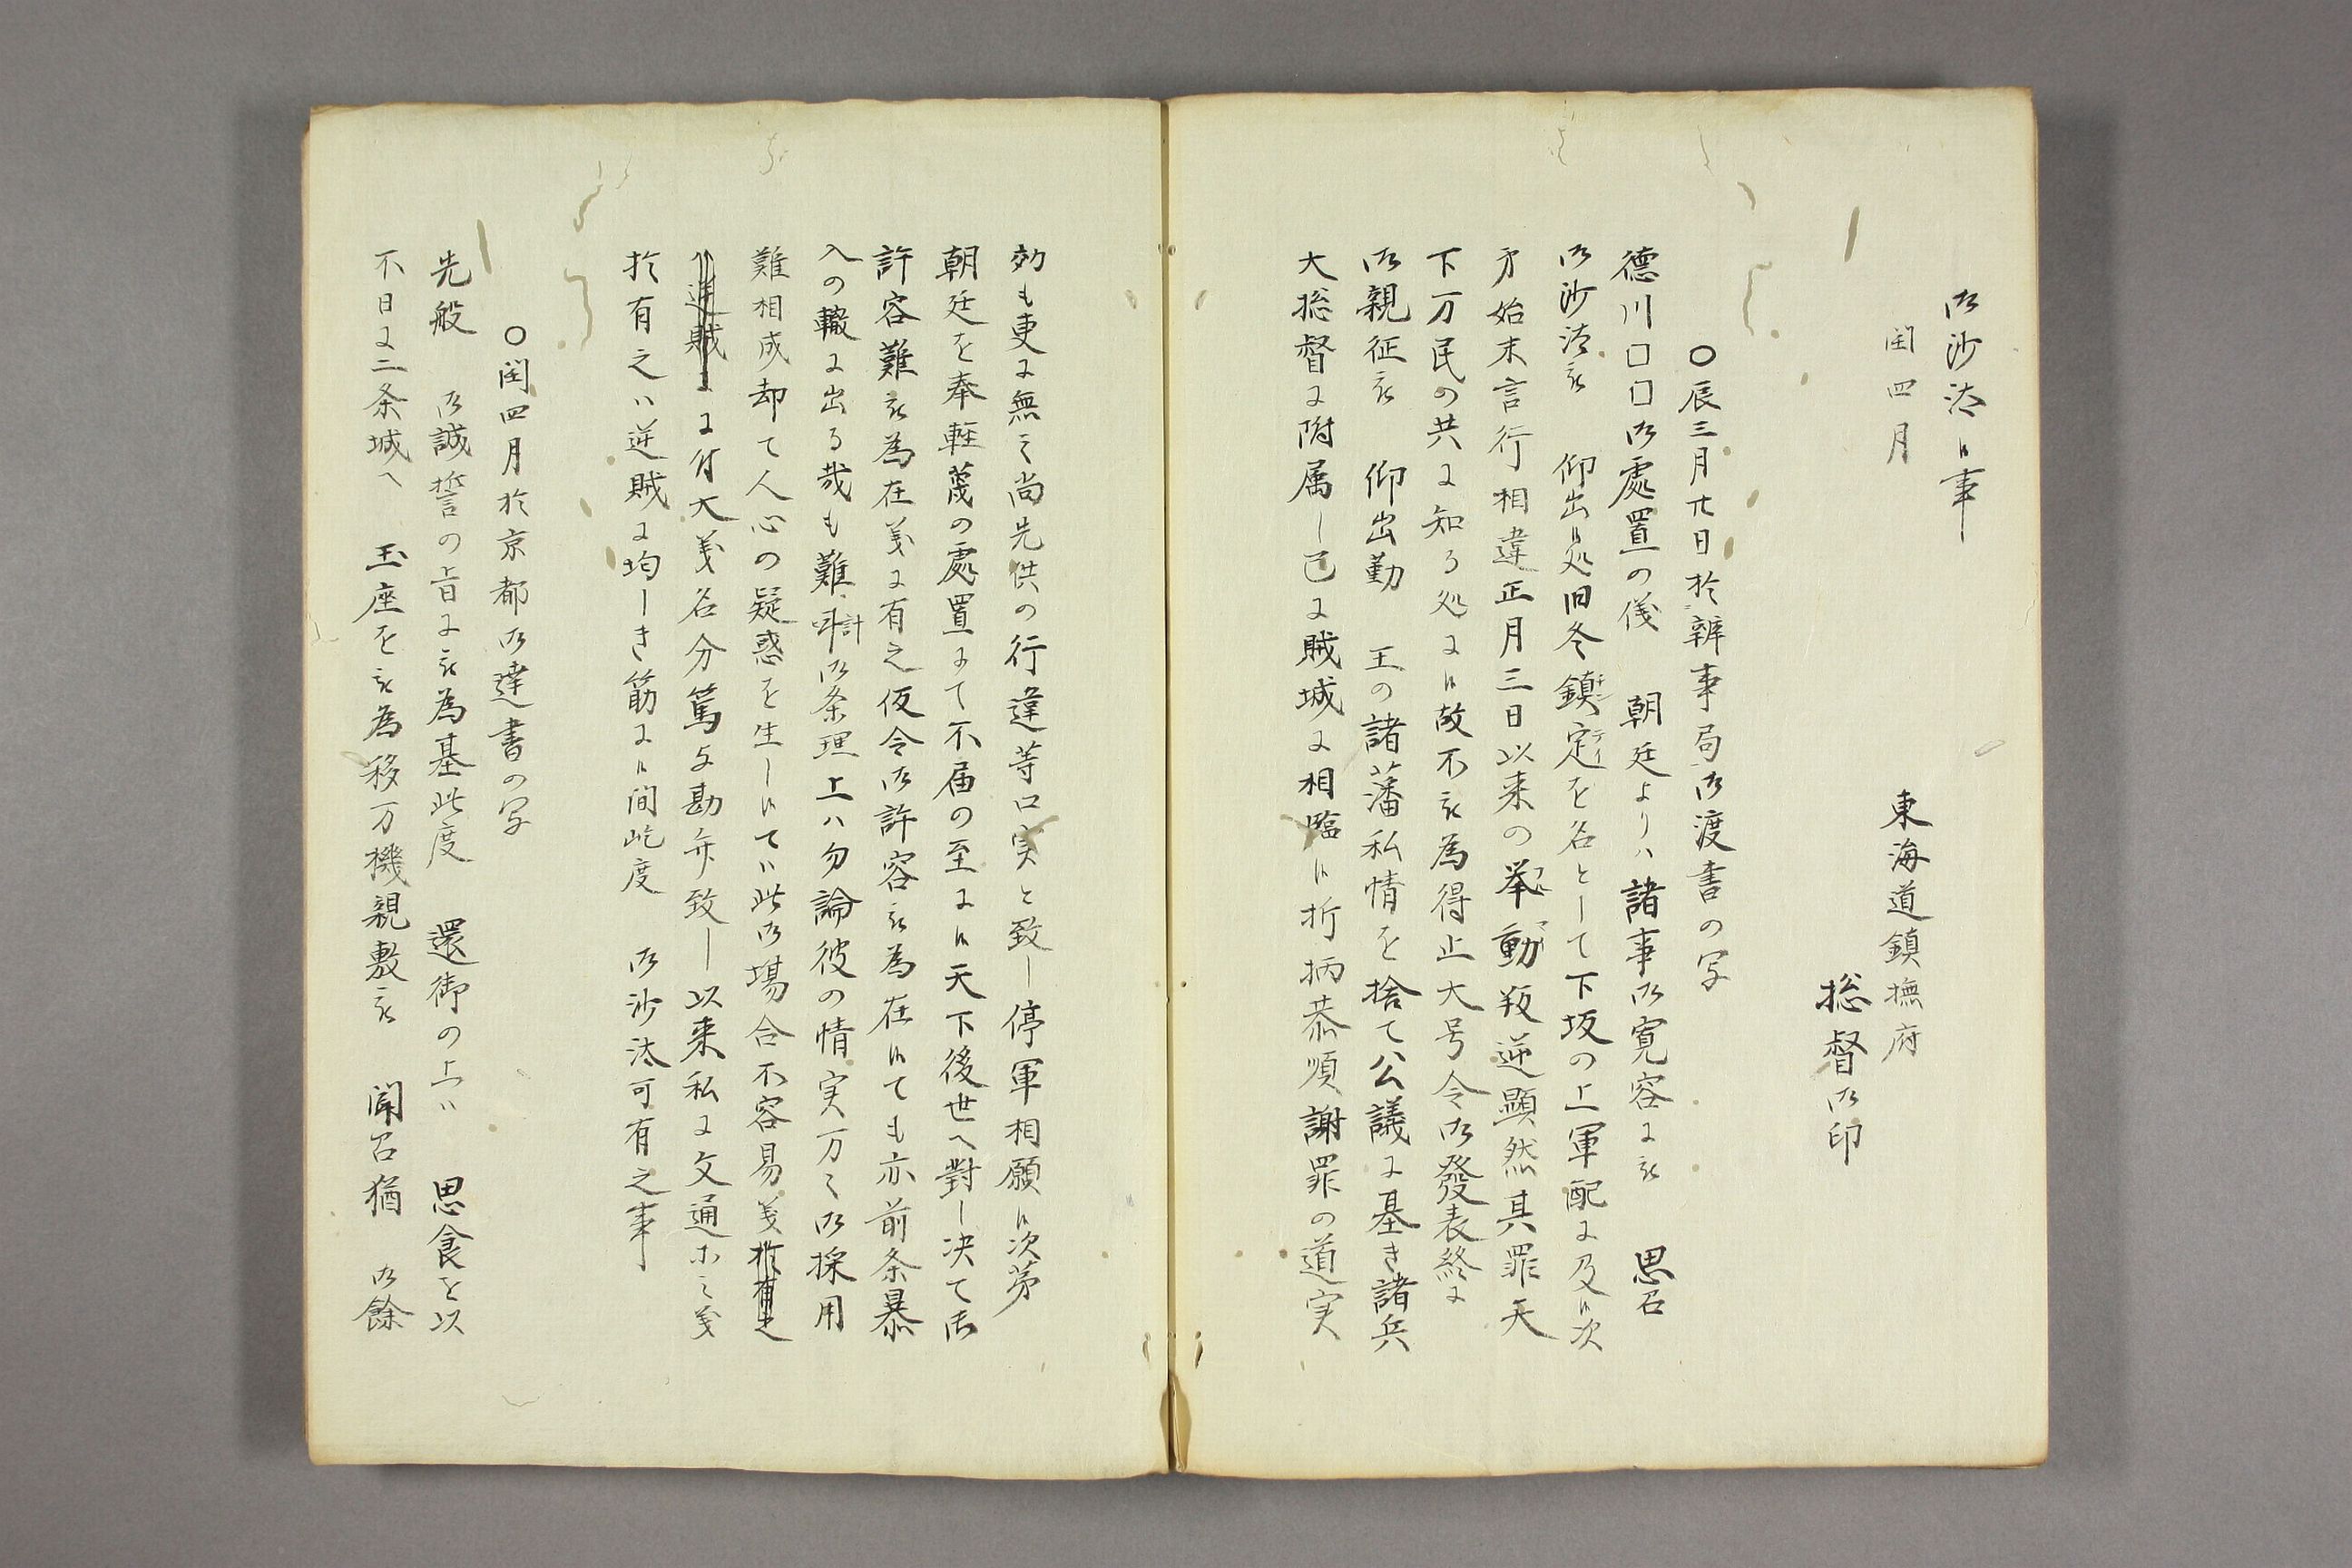 御沙汰候事
閏四月
東海道鎮撫府
総督御印
○辰三月廿日於辨事局御渡書の写
徳川□□御處置の儀　朝廷よりハ諸事御寛容ニ被　思召
御沙汰被　仰出候処旧冬鎮定を名として下坂の上軍配ニ及候次
第始末言行相違正月三日以来の挙動叛逆顕然其罪天
下万民の共ニ知る処ニ候故不被為得止大号令御發表終ニ
御親征被　仰出勤　王の諸藩私情を捨て公議ニ基き諸兵
大総督ニ附属し已ニ賊城ニ相臨候折柄恭順謝罪の道実
効も更ニ無之尚先供の行違等口実と致し停軍相願候次第
朝廷を奉軽蔑の處置ニて不届の至ニ候天下後世へ對し决て御
許容難被為在義ニ有之仮令御許容被為在候ても亦前条暴
入の轍ニ出る哉も難計御条理上ハ勿論彼の情実万々御採用
難相成却て人心の疑惑を生し候てハ此御場合不容易義
ニ付大義名分篤与勘弁致し以来私ニ文通ホ之義
於有之ハ逆賊ニ均しき筋ニ候間屹度　御沙汰可有之事
○閏四月於京都御達書の写
先般　御誠誓の旨ニ被為基此度　還御の上ハ　思食を以
不日ニ二条城へ　玉座を被為移万機親敷被　聞召猶　御餘